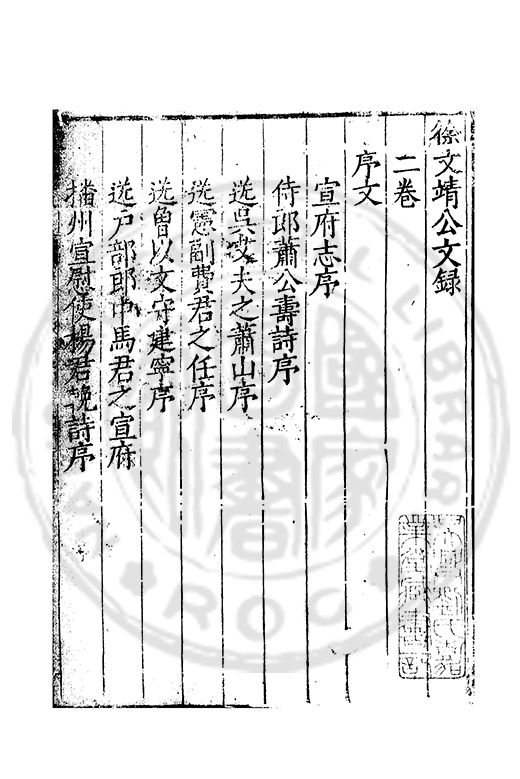 徐文靖公文録
二卷
序文
宣府志序
侍郎蕭公壽詩序
送吳文夫之蕭山序
送憲副費君之任序
送魯以文守建寧序
送戶部郎中馬君之宣府
播州宣慰使楊君輓詩序